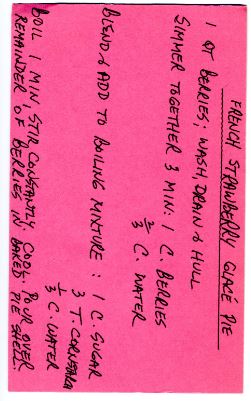 FRENCH STRAWBERRY GLACÉ PIE
1 QT BERRIES; WASH, DRAIN & HULL
SIMMER TOGETHER 3 MIN: 1 C. BERRIES
2/3 C. WATER
BLEND & ADD TO BOILING MIXTURE: 1 C. SUGAR
3 T. CORNSTARCH
1/3 C. WATER
BOIL 1 MIN, STIR CONSTANTLY COOL. POUR OVER
REMAINDER OF BERRIES IN BAKED PIE SHELL